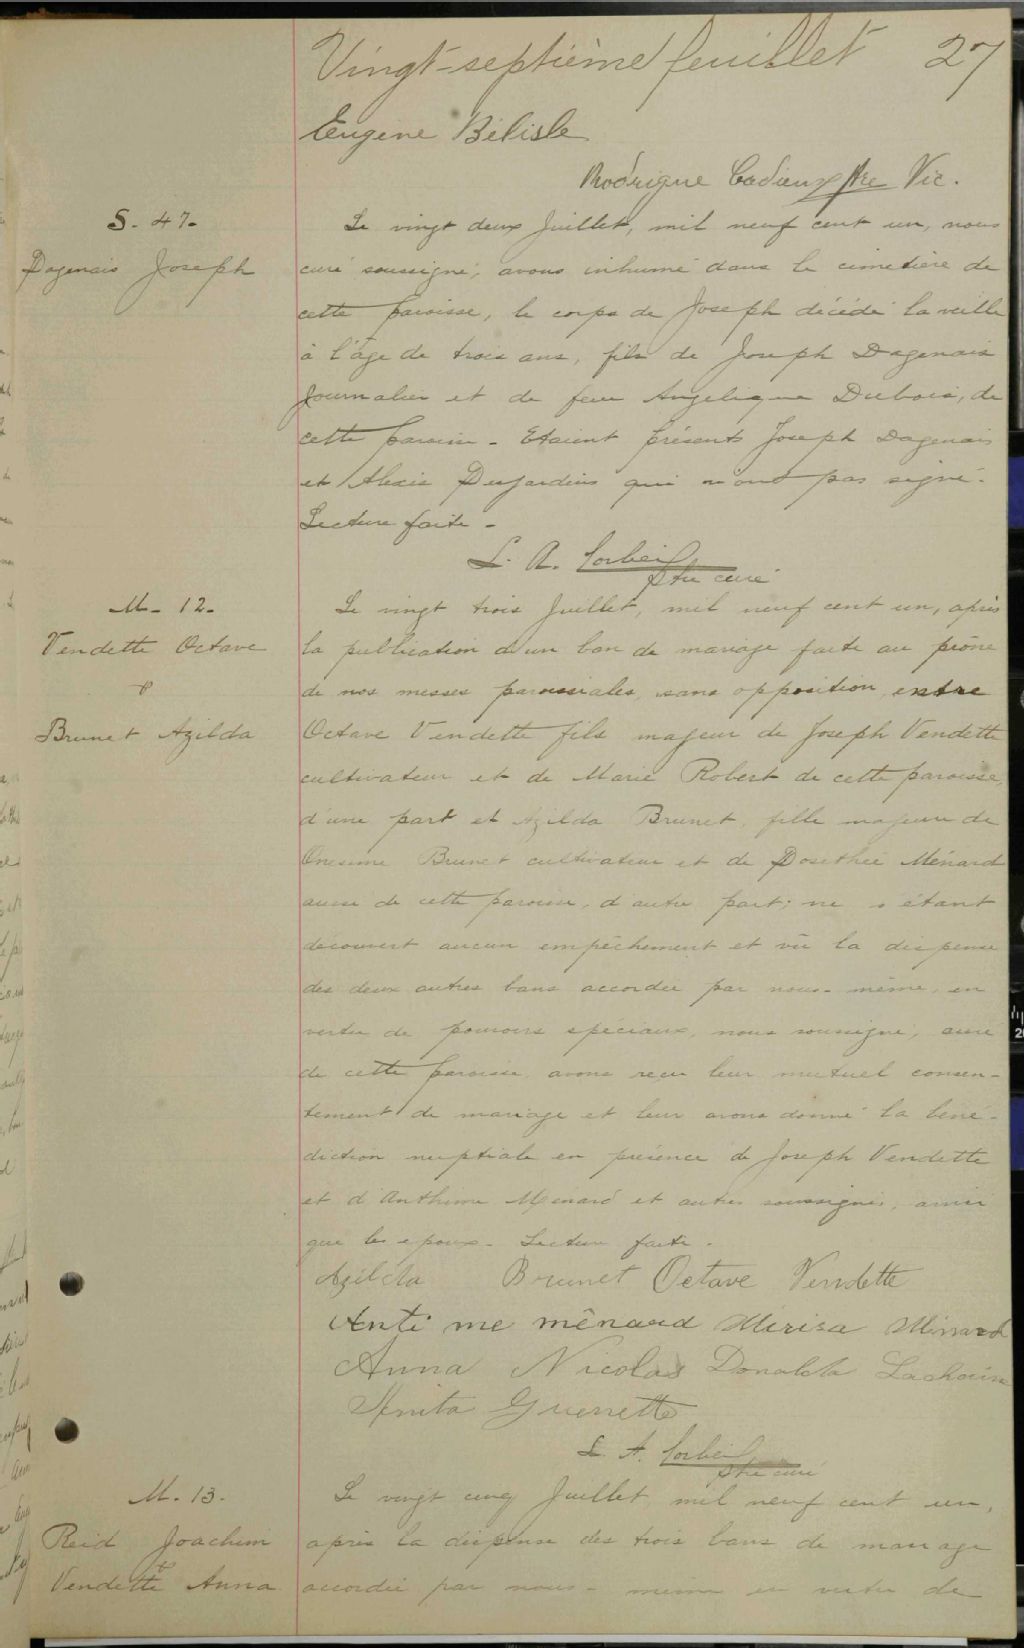 Vingt-septième feuillet 27
Eugène Bélisle
Rodrigue Cadieux Ptre Vic.
S. 47.
Dagenais Joseph
Le vingt deux Juillet, mil neuf cent un, nous
curé soussigné, avons inhumé dans le cimetière de
cette paroisse, le corps de Joseph décédé la veille
à l'âge de trois ans, fils de Joseph Dagenais
Journalier et de feue Angelique Dubois, de
cette paroisse - Etaient présents Joseph Dagenais
et Alexis Desjardins qui n'ont pas signé.
Lecture faite -
L. A. Corbeil
Ptre curé
M- 12.
Vendette Octave
&
Brunet Azilda
Le vingt trois Juillet, mil neuf cent un, après
la publication d'un ban de mariage faite au prône
de nos messes paroissiales, sans opposition, entre
Octave Vendette fils majeur de Joseph Vendette
cultivateur et de Marie Robert de cette paroisse,
d'une part et Azilda Brunet, fille majeure de
Onesime Brunet cultivateur et de Dosithée Ménard
aussi de cette paroisse, d'autre part; ne s'étant
découvert aucun empêchement et vû la dispense
des deux autres bans accordée par nous-même, en
vertu de pouvoirs spéciaux, nous soussigné, curé
de cette paroisse avons reçu leur mutuel consen-
tement de mariage et leur avons donné la béné-
diction nuptiale en présence de Joseph Vendette
et d'Anthime Menard et autres soussignés, ainsi
que les epoux. Lecture faite.
Azilda Brunet Octave Vendette
Anti me mênard Mirisa Minard
Anna Nicolas Donalda
Anita Guenette
L. A. Corbeil
Ptre curé
M. 13.
Reid Joachim
&
Vendette Anna
Le vingt cinq Juillet mil neuf cent un,
après la dispense des trois bans de mariage
accordée par nous-même en vertu de